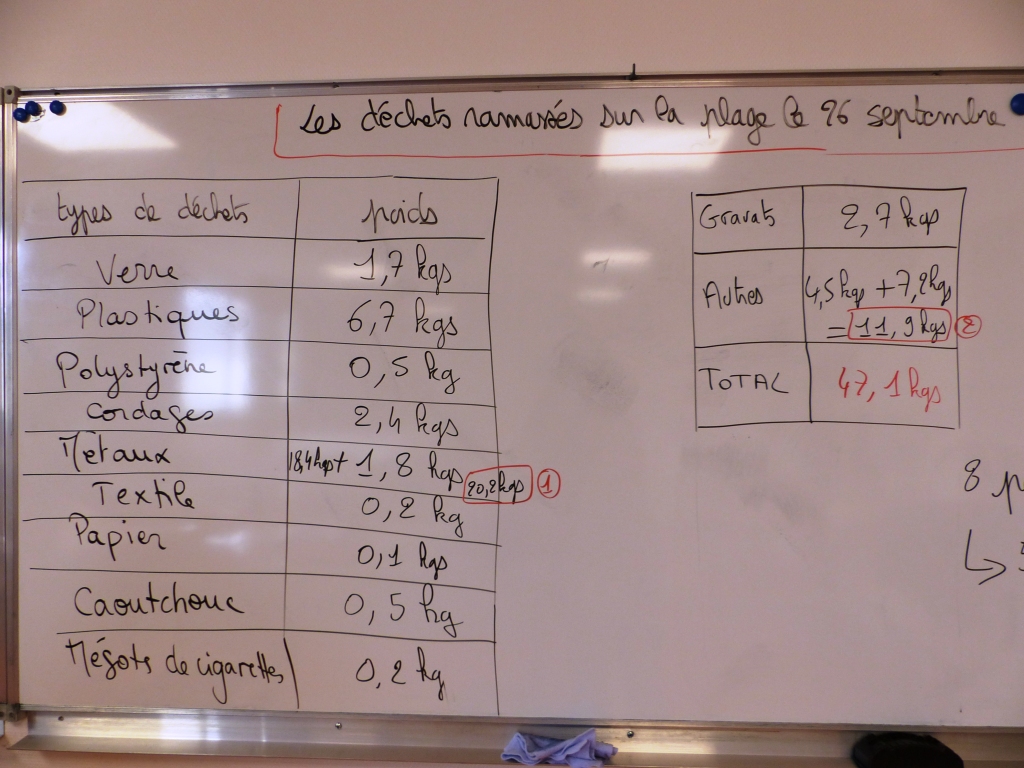 Les déchets ramassés sur la plage le 26 septembre
types de déchets poids
Verre 1,7 kgs
Plastiques 6,7 kgs
Polystyrène 0,5 kg
Cordages 2,4 kgs
Métaux 18,4 kgs + 1,8 kgs 20,2 kgs 1
Textile 0,2 kg
Papier 0,1 kgs
Caoutchouc 0,5 kg
Mégots de cigarettes 0,2 kg
Gravats 2,7 kgs
Autres 4,5 kgs + 7,2 kgs
= 11,9 kgs 2
TOTAL 47,1 kgs
8